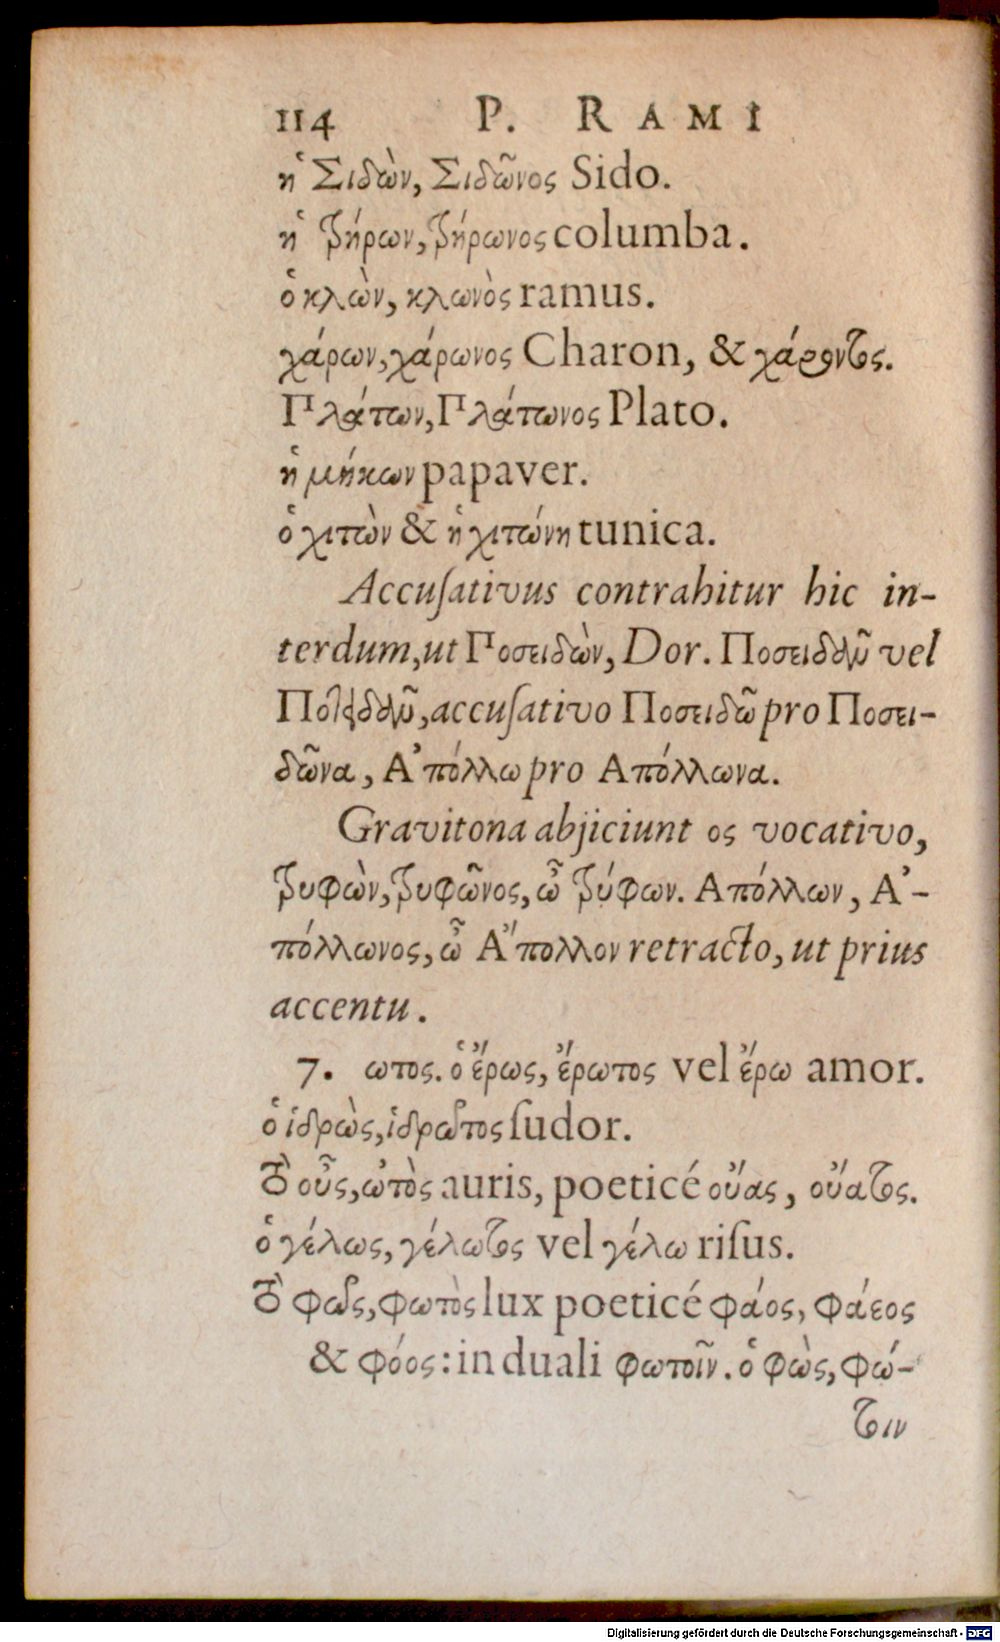 114 P. RAMI
ἡ Σιδὼν, Σιδῶνος Sido.
ἡ τήρων, τήρωνος columba.
ὁ κλὼν, κλωνὸς ramus.
χάρων, χάρωνος Charon, & χάροντος.
Πλάτων, Πλάτωνος Plato.
ἡ μήκων papaver.
ὁ χιτὼν & ἡ χιτώνη tunica.
Accuſativus contrahitur hic in-
terdum, ut Ποσειδὼν, Dor. Ποσειδᾶν vel
accuſativo Ποσειδῶ pro Ποσει-
δῶνα, Α᾿πόλλω pro Απόλλωνα.
Gravitona abjiciunt ος vocativo,
τυφὼν, τυφῶνος, ὦ τύφων. Απόλλων, Α᾿-
πόλλωνος, ὦ Α῎πολλον retracto, ut prius
accentu.
7. ωτος. ὁ ἔρως, ἔρωτος vel ἔρω amor.
ὁ ἱδρὼς, ἱδρῶτος ſudor.
τὸ οὖς, ὠτὸς auris, poeticé οὔας, οὔατος.
ὁ γέλως, γέλωτος vel γέλω riſus.
τὸ φῶς, φωτὸς lux poeticé φάος, φάεος
& φόος: in duali φωτοῖν. ὁ φὼς, φώ-
τιν
Digitalisierung gefördert durch die Deutsche Forschungsgemeinschaft - DFG